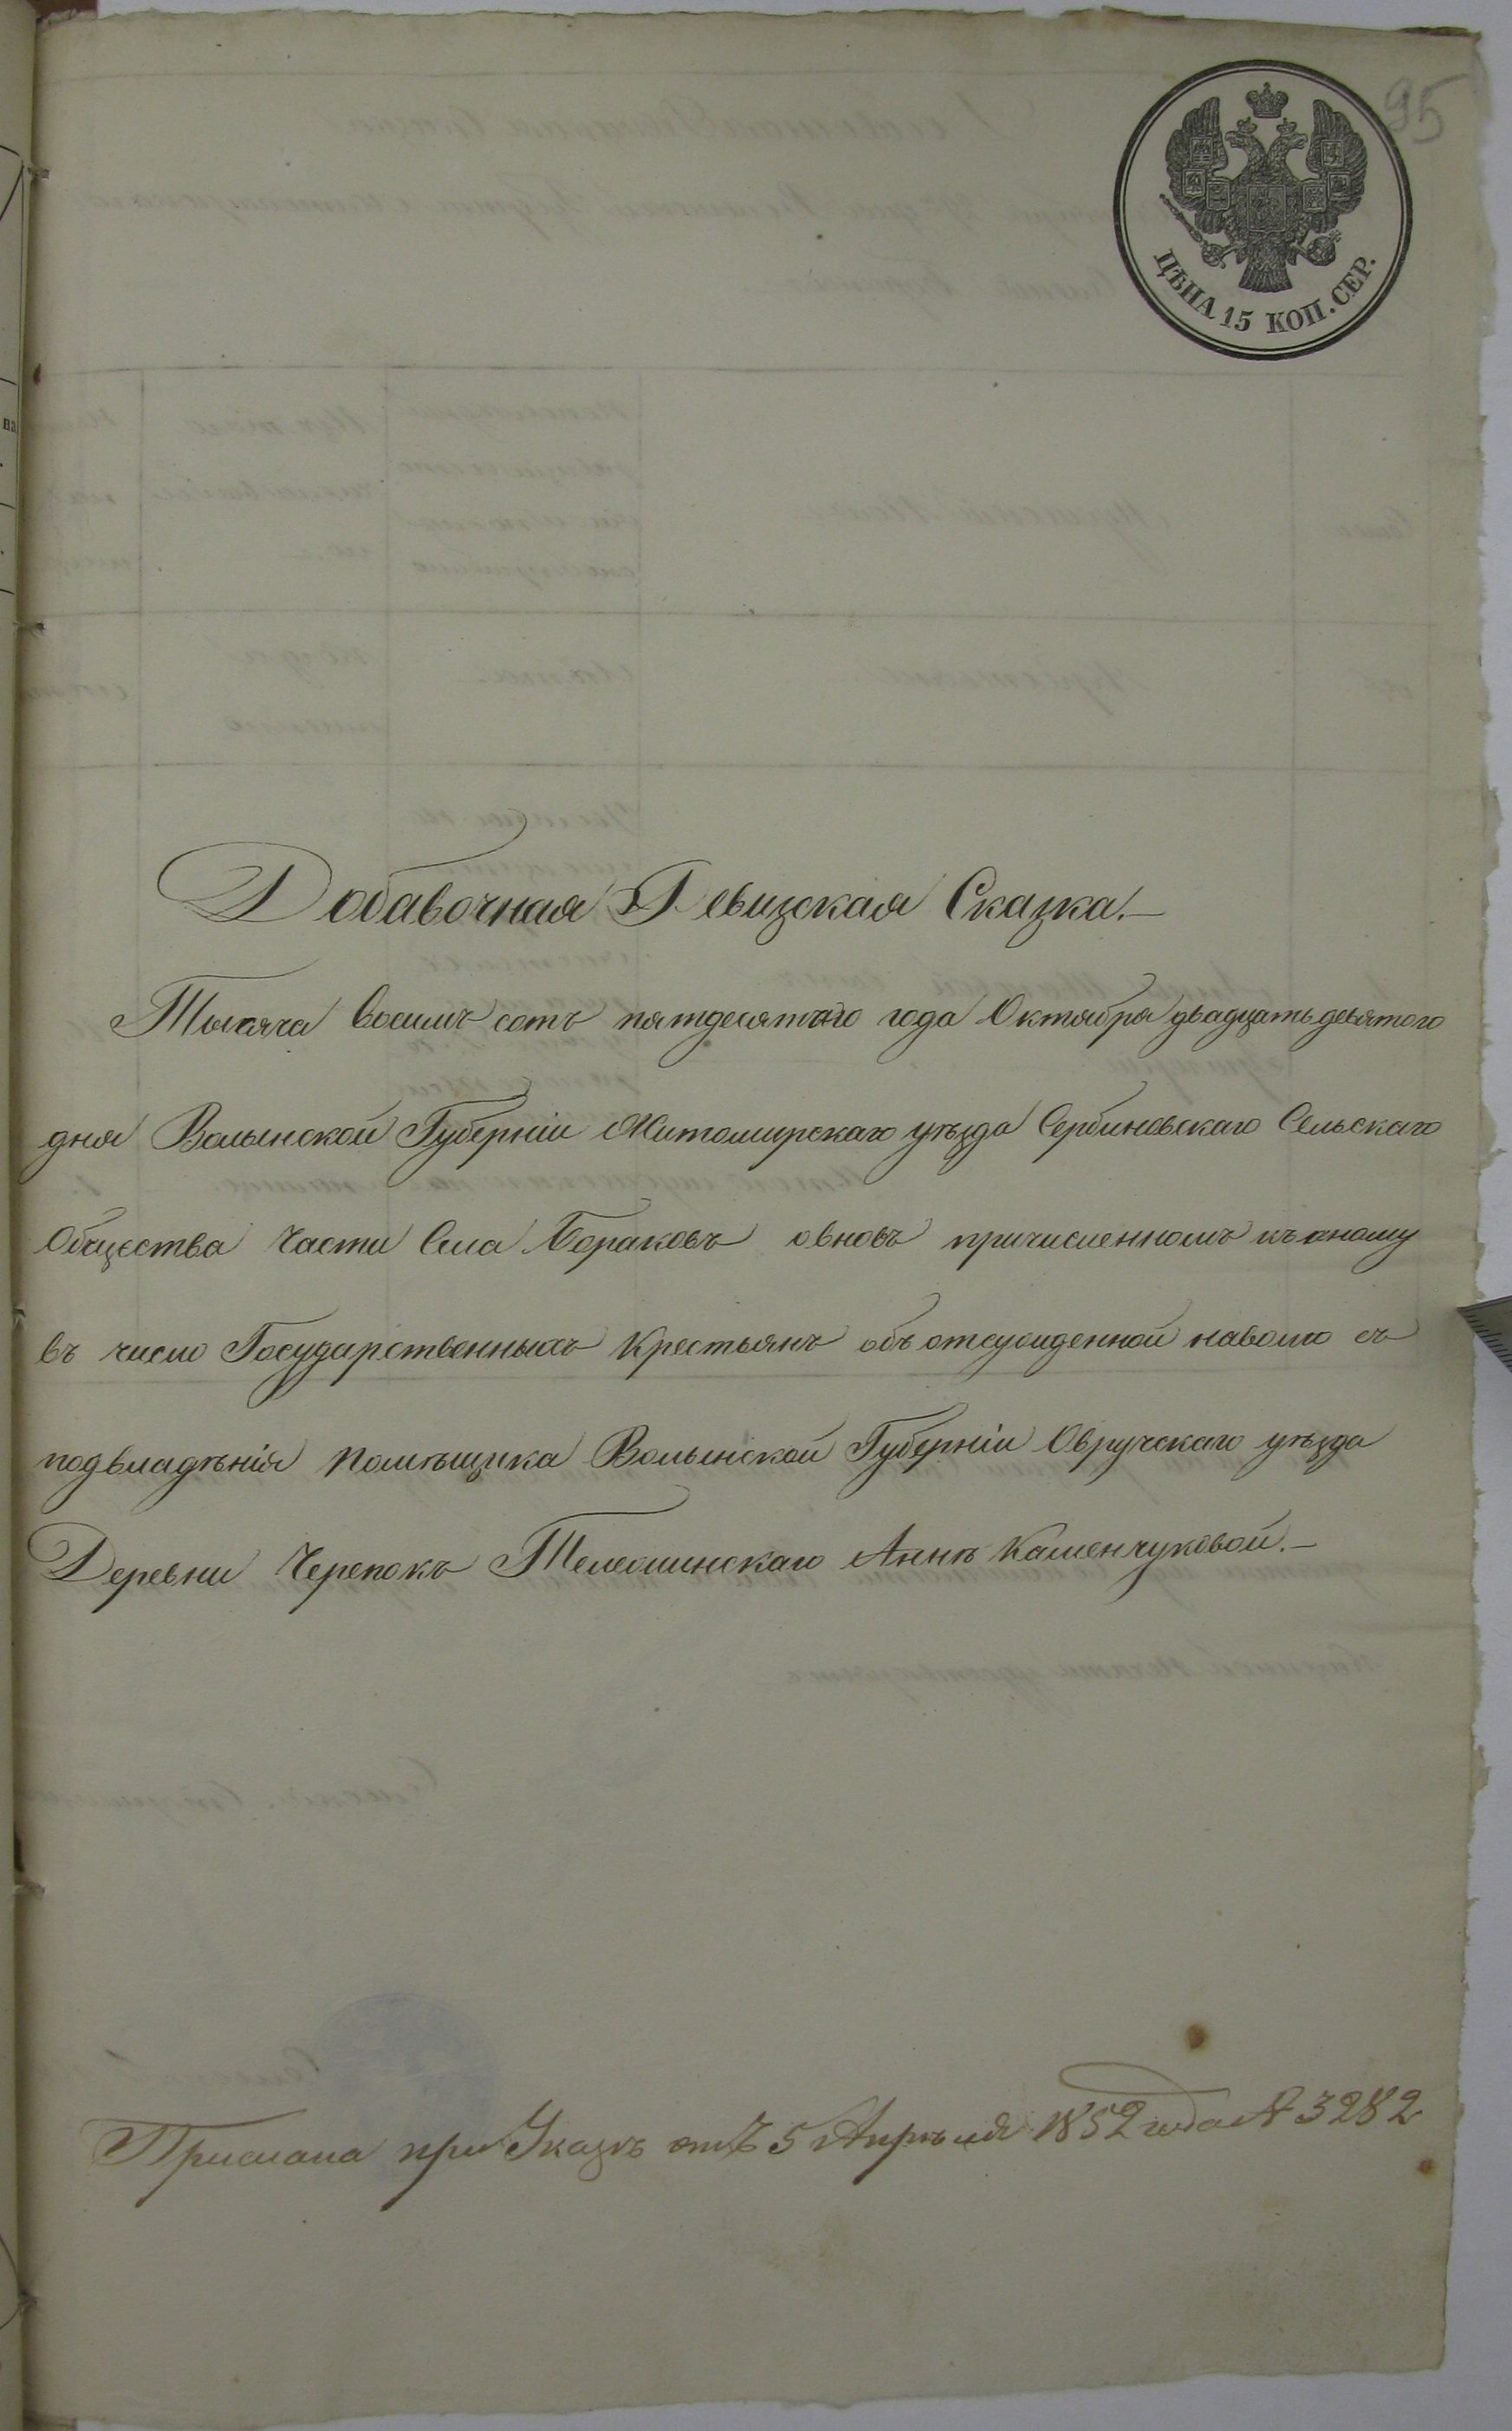 95
ЦѢНА 15 КОП. СЕР.
Добавочная Ревизская Сказка.—
Тысяча восимъ сотъ пятдесятого года Октября двадцать девятого
дня Волынской Губерніи Житомирскаго уѣзда Сербиновскаго Сельскаго
Общества части Села Бораковъ овновъ причисленномъ къ оному
въ число Государственныхъ Крестьянъ объ отсужденной наволю съ
подвладѣнія Помѣщика Волынской Губерніи Овручскаго уѣзда
Деревни Черепокъ Телешинскаго Аннѣ Каменчуковой.—
Прислана при Указѣ отъ 5 Апрѣля 1852 года № 3282